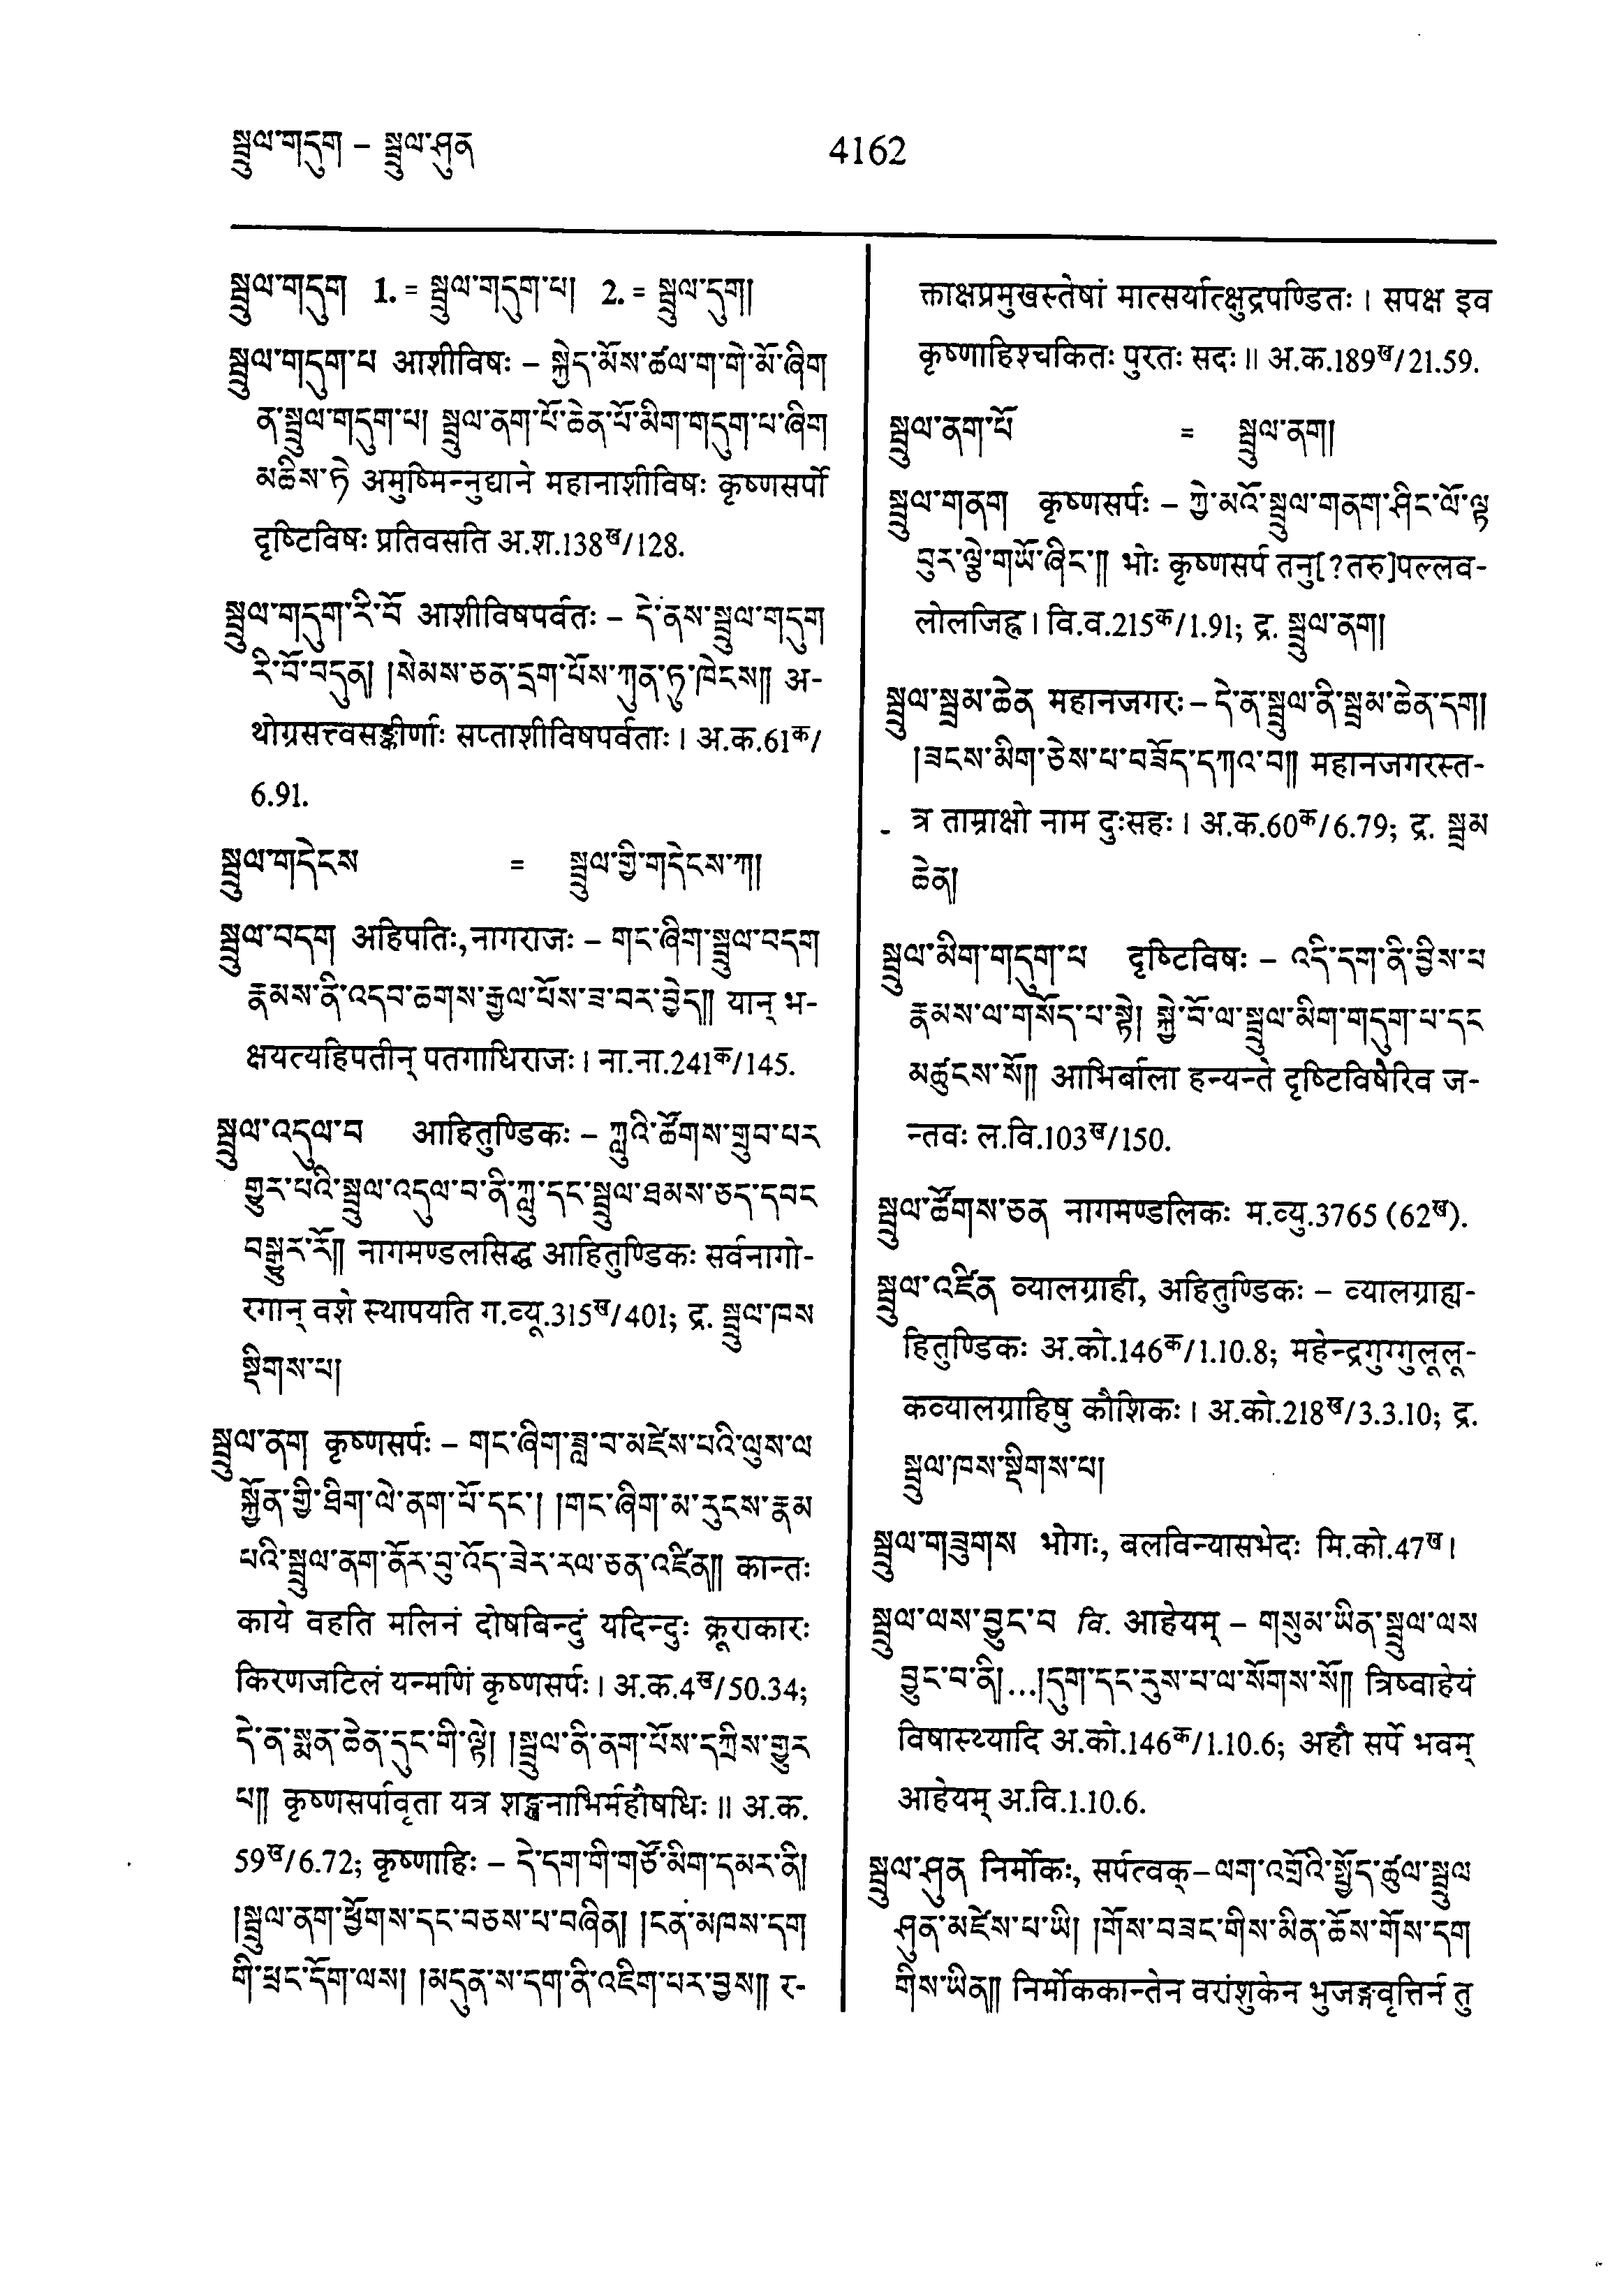 སྦྲུལ་གདུག – སྦྲུལ་ཤུན
4162
སྦྲུལ་གདུག 1. = སྦྲུལ་གདུག་པ། 2. = སྦྲུལ་དུག།
སྦྲུལ་གདུག་པ आशीविषः – སྐྱེད་མོས་ཚལ་ག་གེ་མོ་ཞིག
ན་སྦྲུལ་གདུག་པ། སྦྲུལ་ནག་པོ་ཆེན་པོ་མིག་གདུག་པ་ཞིག
མཆིས་ཏེ अमुष्मिन्नुद्याने महानाशीविषः कृष्णसर्पो
दृष्टिविषः प्रतिवसति अ.श.138ख/128.
སྦྲུལ་གདུག་རི་བོ आशीविषपर्वतः – དེ་ནས་སྦྲུལ་གདུག
རི་བོ་བདུན། །སེམས་ཅན་དྲག་པོས་ཀུན་ཏུ་ཁེངས།། अ-
थोग्रसत्त्वसङ्कीर्णाः सप्ताशीविषपर्वताः । अ.क.61क/
6.91.
སྦྲུལ་གདེངས = སྦྲུལ་གྱི་གདེངས་ཀ།
སྦྲུལ་བདག अहिपतिः, नागराजः – གང་ཞིག་སྦྲུལ་བདག
རྣམས་ནི་འདབ་ཆགས་རྒྱལ་པོས་ཟ་བར་བྱེད།། यान् भ-
क्षयत्यहिपतीन् पतगाधिराजः । ना.ना.241क/145.
སྦྲུལ་འདུལ་བ आहितुण्डिकः – ཀླུའི་ཚོགས་གྲུབ་པར
གྱུར་པའི་སྦྲུལ་འདུལ་བ་ནི་ཀླུ་དང་སྦྲུལ་ཐམས་ཅད་དབང
བསྒྱུར་རོ།། नागमण्डलसिद्ध आहितुण्डिकः सर्वनागो-
रगान् वशे स्थापयति ग.व्यू.315ख/401; द्र. སྦྲུལ་ཁས
སྡིགས་པ།
སྦྲུལ་ནག कृष्णसर्पः – གང་ཞིག་ཟླ་བ་མཛེས་པའི་ལུས་ལ
སྐྱོན་གྱི་ཐིག་ལེ་ནག་པོ་དང་། །གང་ཞིག་མ་རུངས་རྣམ
པའི་སྦྲུལ་ནག་ནོར་བུ་འོད་ཟེར་རལ་ཅན་འཛིན།། कान्तः
काये वहति मलिनं दोषबिन्दुं यदिन्दुः क्रूराकारः
किरणजटिलं यन्मणिं कृष्णसर्पः । अ.क.4ख/50.34;
དེ་ན་སྨན་ཆེན་དུང་གི་ལྟེ། །སྦྲུལ་ནི་ནག་པོས་དཀྲིས་གྱུར
པ།། कृष्णसर्पावृता यत्र शङ्खनाभिर्महौषधिः ॥ अ.क.
59ख/6.72; कृष्णाहिः – དེ་དག་གི་གཙོ་མིག་དམར་ནི།
།སྦྲུལ་ནག་ཕྱོགས་དང་བཅས་པ་བཞིན། །ངན་མཁས་དག
གི་ཕྲང་དོག་ལས། །མདུན་ས་དག་ནི་འཇིག་པར་བྱས།། र-
क्ताक्षप्रमुखस्तेषां मात्सर्यात्क्षुद्रपण्डितः । सपक्ष इव
कृष्णाहिश्चकितः पुरतः सदः ॥ अ.क.189ख/21.59.
སྦྲུལ་ནག་པོ = སྦྲུལ་ནག།
སྦྲུལ་གནག कृष्णसर्पः – ཀྱེ་མའོ་སྦྲུལ་གནག་ཤིང་ལོ་ལྟ
བུར་ལྕེ་གཡོ་ཞིང་།། भोः कृष्णसर्प तनु[?तरु]पल्लव-
लोलजिह्व । वि.व.215क/1.91; द्र. སྦྲུལ་ནག།
སྦྲུལ་སྦྲམ་ཆེན महानजगरः – དེ་ན་སྦྲུལ་ནི་སྦྲམ་ཆེན་དག།
།ཟངས་མིག་ཅེས་པ་བཟོད་དཀའ་བ།། महानजगरस्त-
त्र ताम्राक्षो नाम दुःसहः । अ.क.60क/6.79; द्र. སྦྲམ
ཆེན།
སྦྲུལ་མིག་གདུག་པ दृष्टिविषः – འདི་དག་ནི་བྱིས་པ
རྣམས་ལ་གསོད་པ་སྟེ། སྐྱེ་བོ་ལ་སྦྲུལ་མིག་གདུག་པ་དང
མཚུངས་སོ།། आभिर्बाला हन्यन्ते दृष्टिविषैरिव ज-
न्तवः ल.वि.103ख/150.
སྦྲུལ་ཚོགས་ཅན नागमण्डलिकः म.व्यु.3765 (62ख).
སྦྲུལ་འཛིན व्यालग्राही, अहितुण्डिकः – व्यालग्राह्य-
हितुण्डिकः अ.को.146क/1.10.8; महेन्द्रगुग्गुलूलू-
कव्यालग्राहिषु कौशिकः । अ.को.218ख/3.3.10; द्र.
སྦྲུལ་ཁས་སྡིགས་པ།
སྦྲུལ་གཟུགས भोगः, बलविन्यासभेदः मि.को.47ख ।
སྦྲུལ་ལས་བྱུང་བ वि. आहेयम् – གསུམ་ཡིན་སྦྲུལ་ལས
བྱུང་བ་ནི།...།དུག་དང་རུས་པ་ལ་སོགས་སོ།། त्रिष्वाहेयं
विषास्थ्यादि अ.को.146क/1.10.6; अहौ सर्पे भवम्
आहेयम् अ.वि.1.10.6.
སྦྲུལ་ཤུན निर्मोकः, सर्पत्वक् – ལག་འགྲོའི་སྤྱོད་ཚུལ་སྦྲུལ
ཤུན་མཛེས་པ་ཡི། །གོས་བཟང་གིས་མིན་ཆོས་གོས་དག
གིས་ཡིན།། निर्मोककान्तेन वरांशुकेन भुजङ्गवृत्तिर्न तु